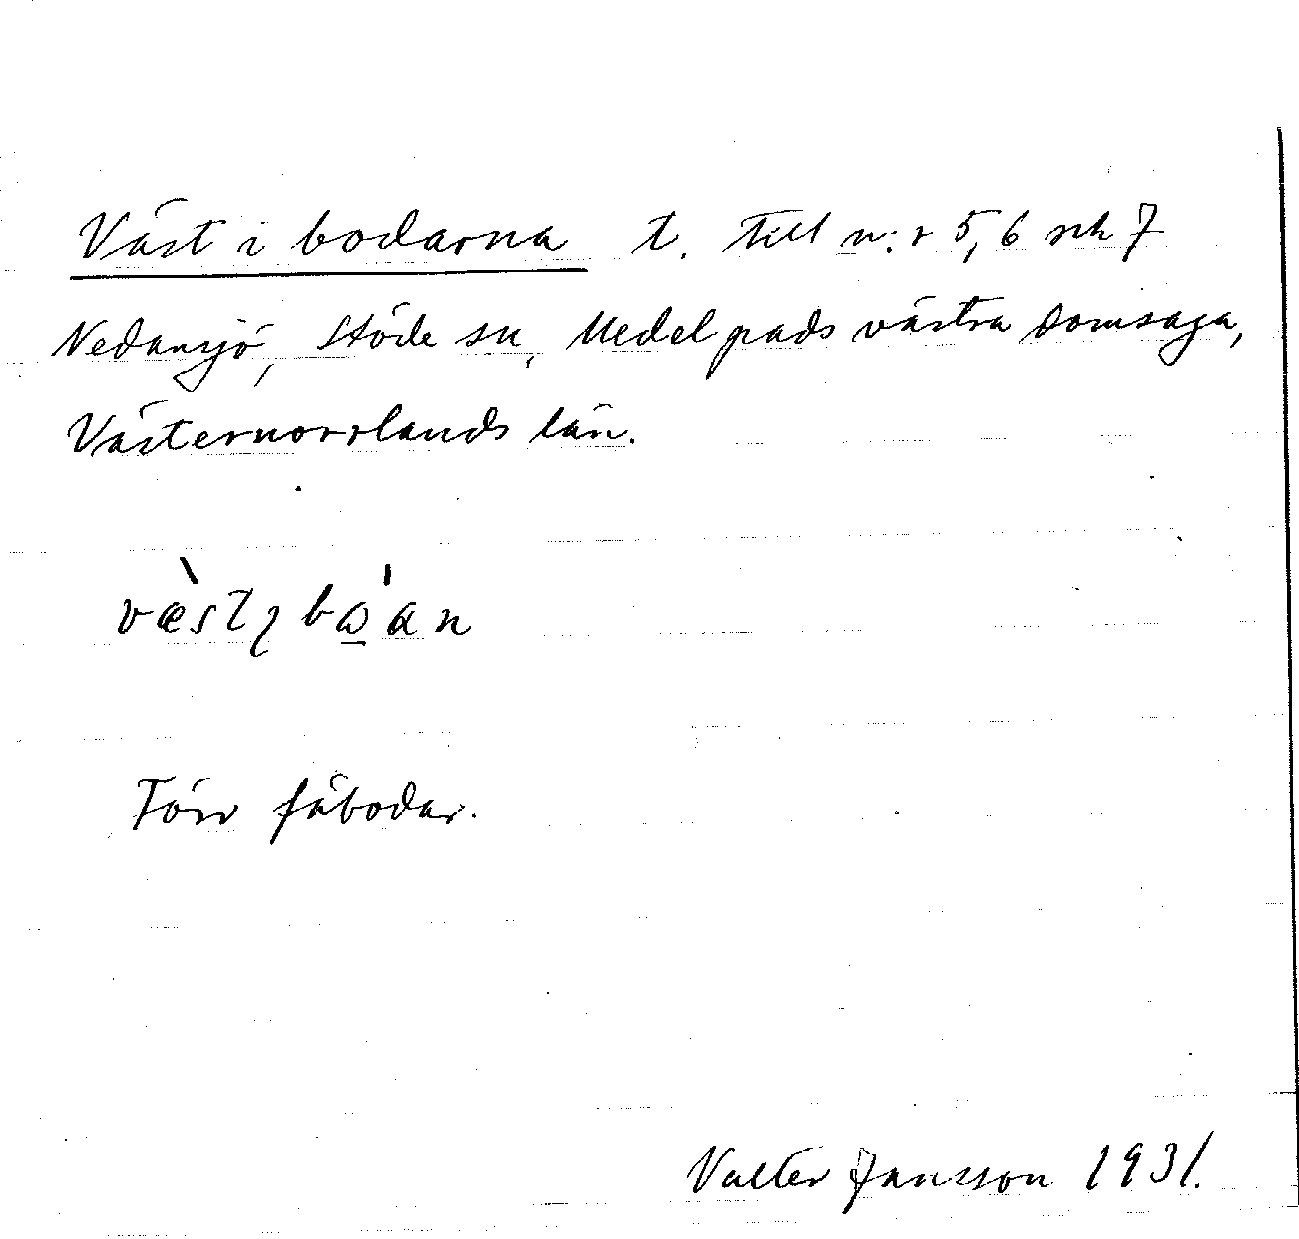 Väst i bodarna t. till n:r 5, 6 och 7
Nedansjö, Stöde sn, Medelpads västra domsaga,
Västernorrlands län.
Förr fäbodar.
Valter Jansson 1931.